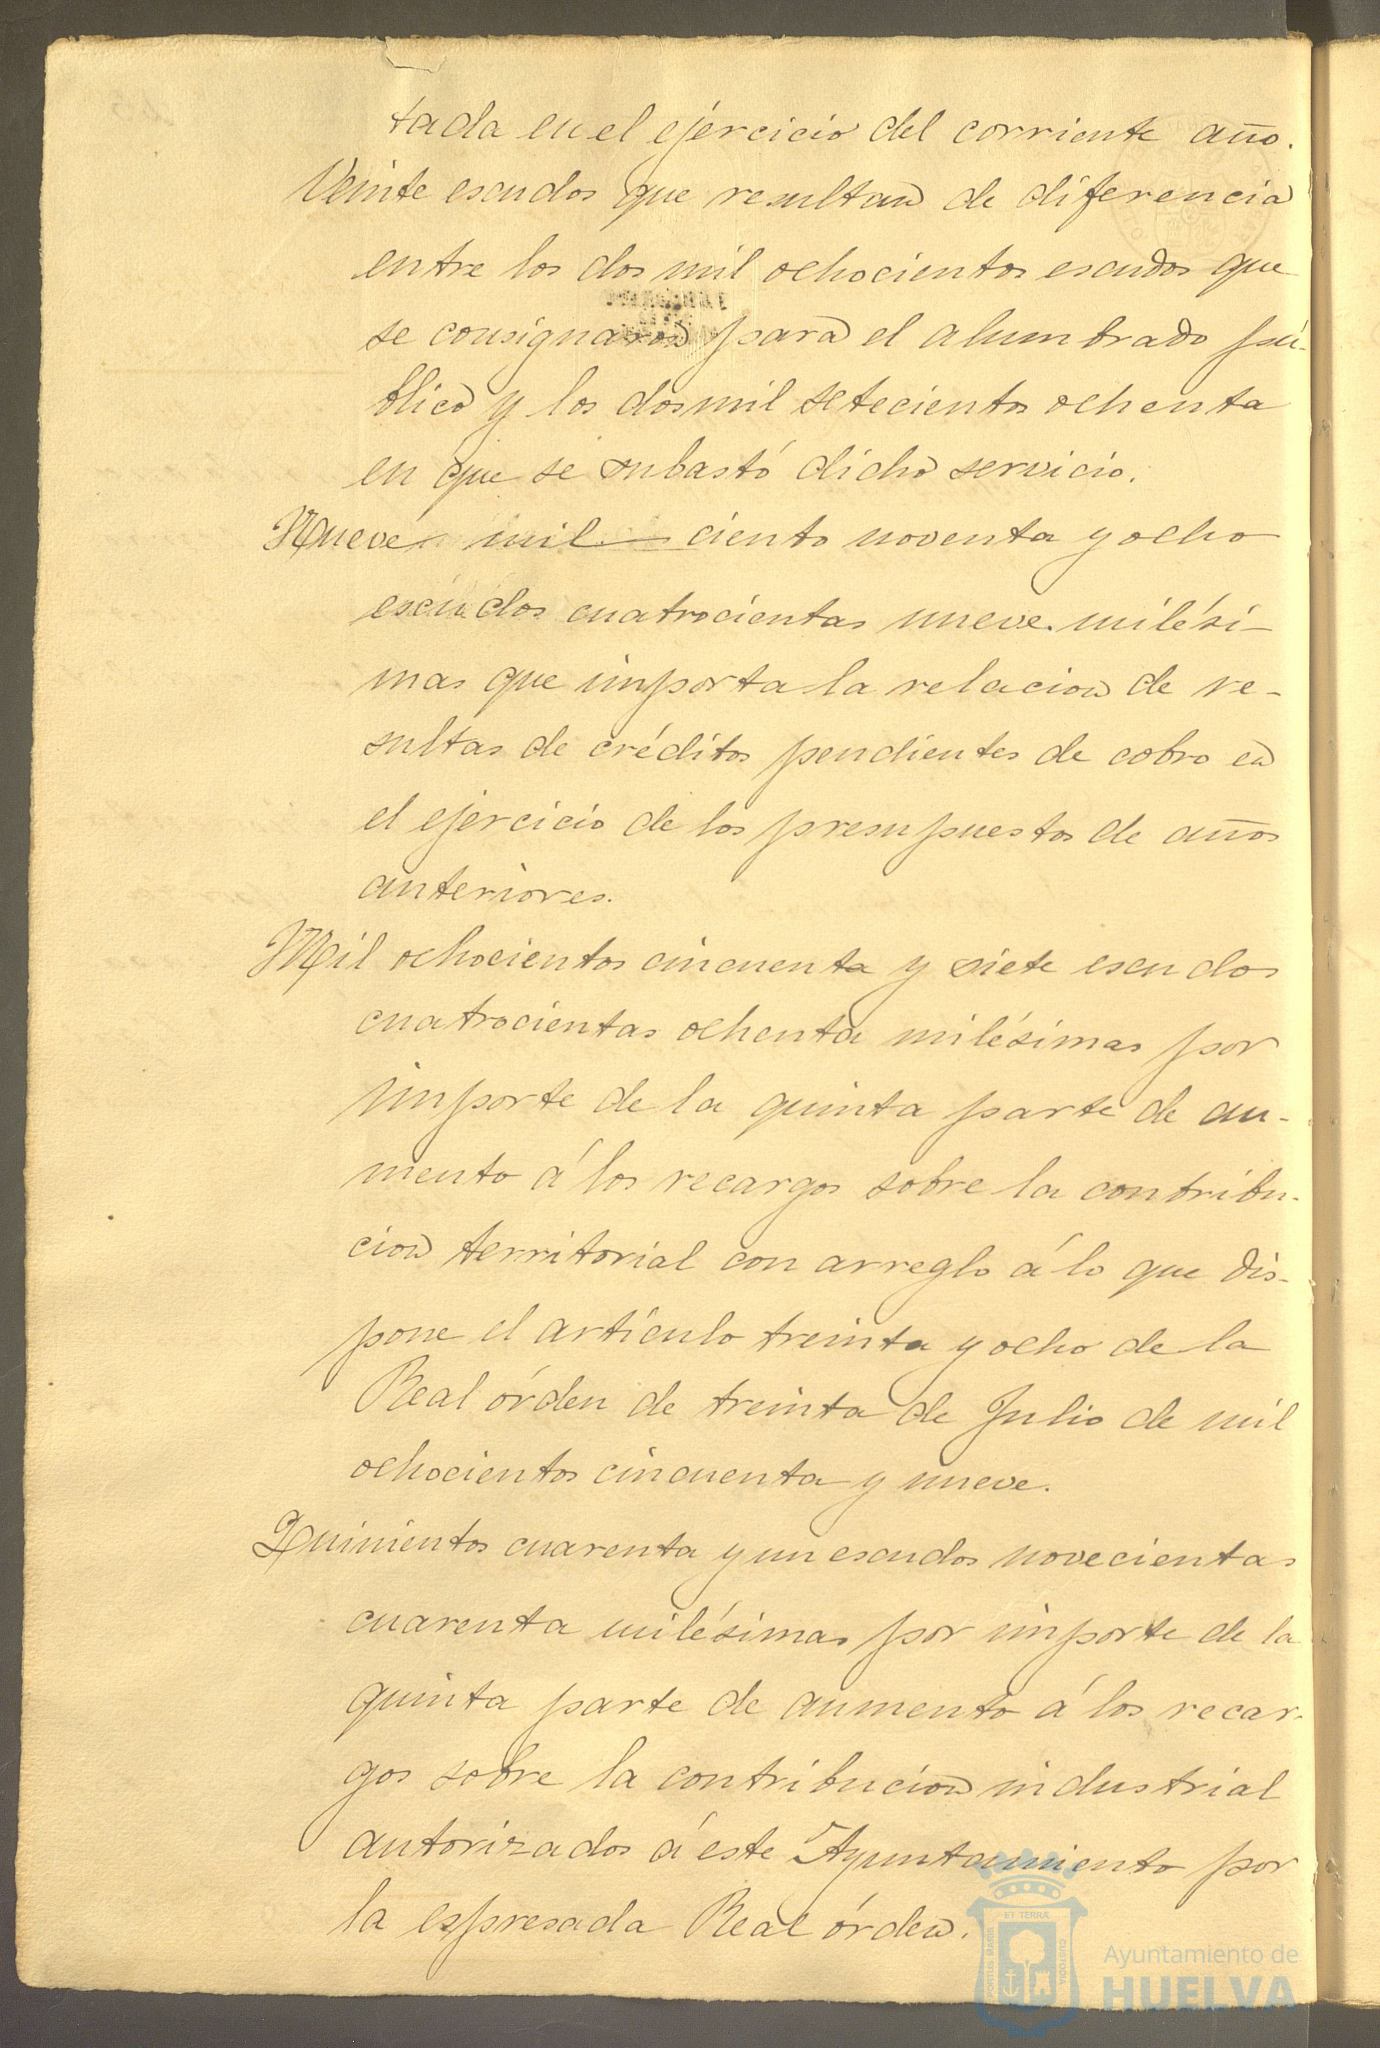 tada en el ejércicio del corriente año.
Veinte escudos que resultan de diferencia
entre los dos mil ochocientos escudos que
se consignaron para el alumbrado pú-
blico y los dos mil setecientos ochenta
en que se subastó dicho servicio.
Nueve mil — ciento noventa y ocho
escudos cuatrocientas nueve milési-
mas que importa la relacion de re-
sultas de créditos pendientes de cobro en
el ejercicio de los presupuestos de años
anteriores.
Mil ochocientos cincuenta y siete escudos
cuatrocientas ochenta milésimas por
importe de la quinta parte de au-
mento á los recargos sobre la contribu-
cion territorial con arreglo á lo que dis-
pone el artículo treinta y ocho de la
Real órden de treinta de Julio de mil
ochocientos cincuenta y nueve.
Quinientos cuarenta y un escudos novecientas
cuarenta milésimas por importe de la
quinta parte de aumento á los recar-
gos sobre la contribucion industrial
autorizados á este Ayuntamiento por
la espresada Real órden.
ET TERRÆ
PORTUS MARIS
CUSTODIA
Ayuntamiento de
HUELVA